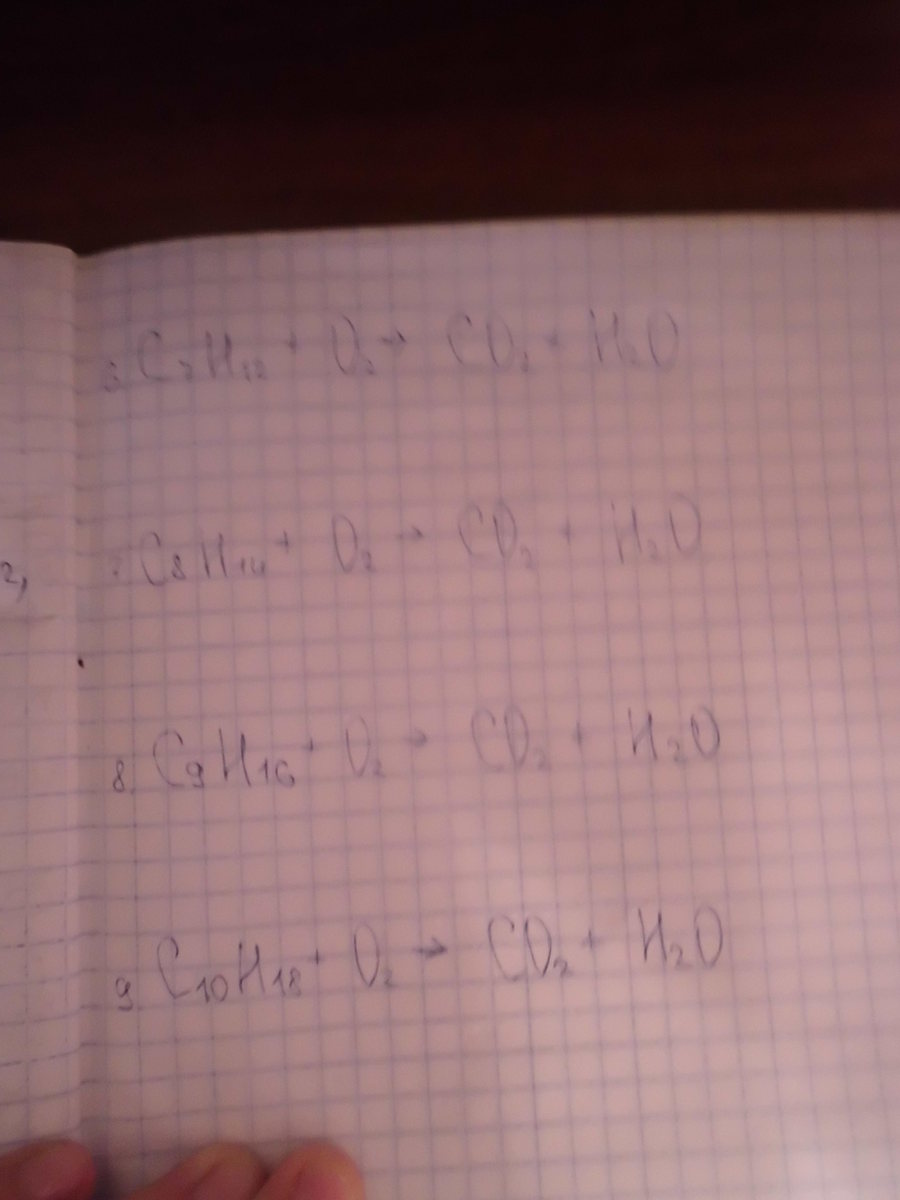 6. C₇H₁₂ + O₂ → CO₂ + H₂O
C₈H₁₄ + O₂ → CO₂ + H₂O
2,
8. C₉H₁₆ + O₂ → CO₂ + H₂O
9. C₁₀H₁₈ + O₂ → CO₂ + H₂O